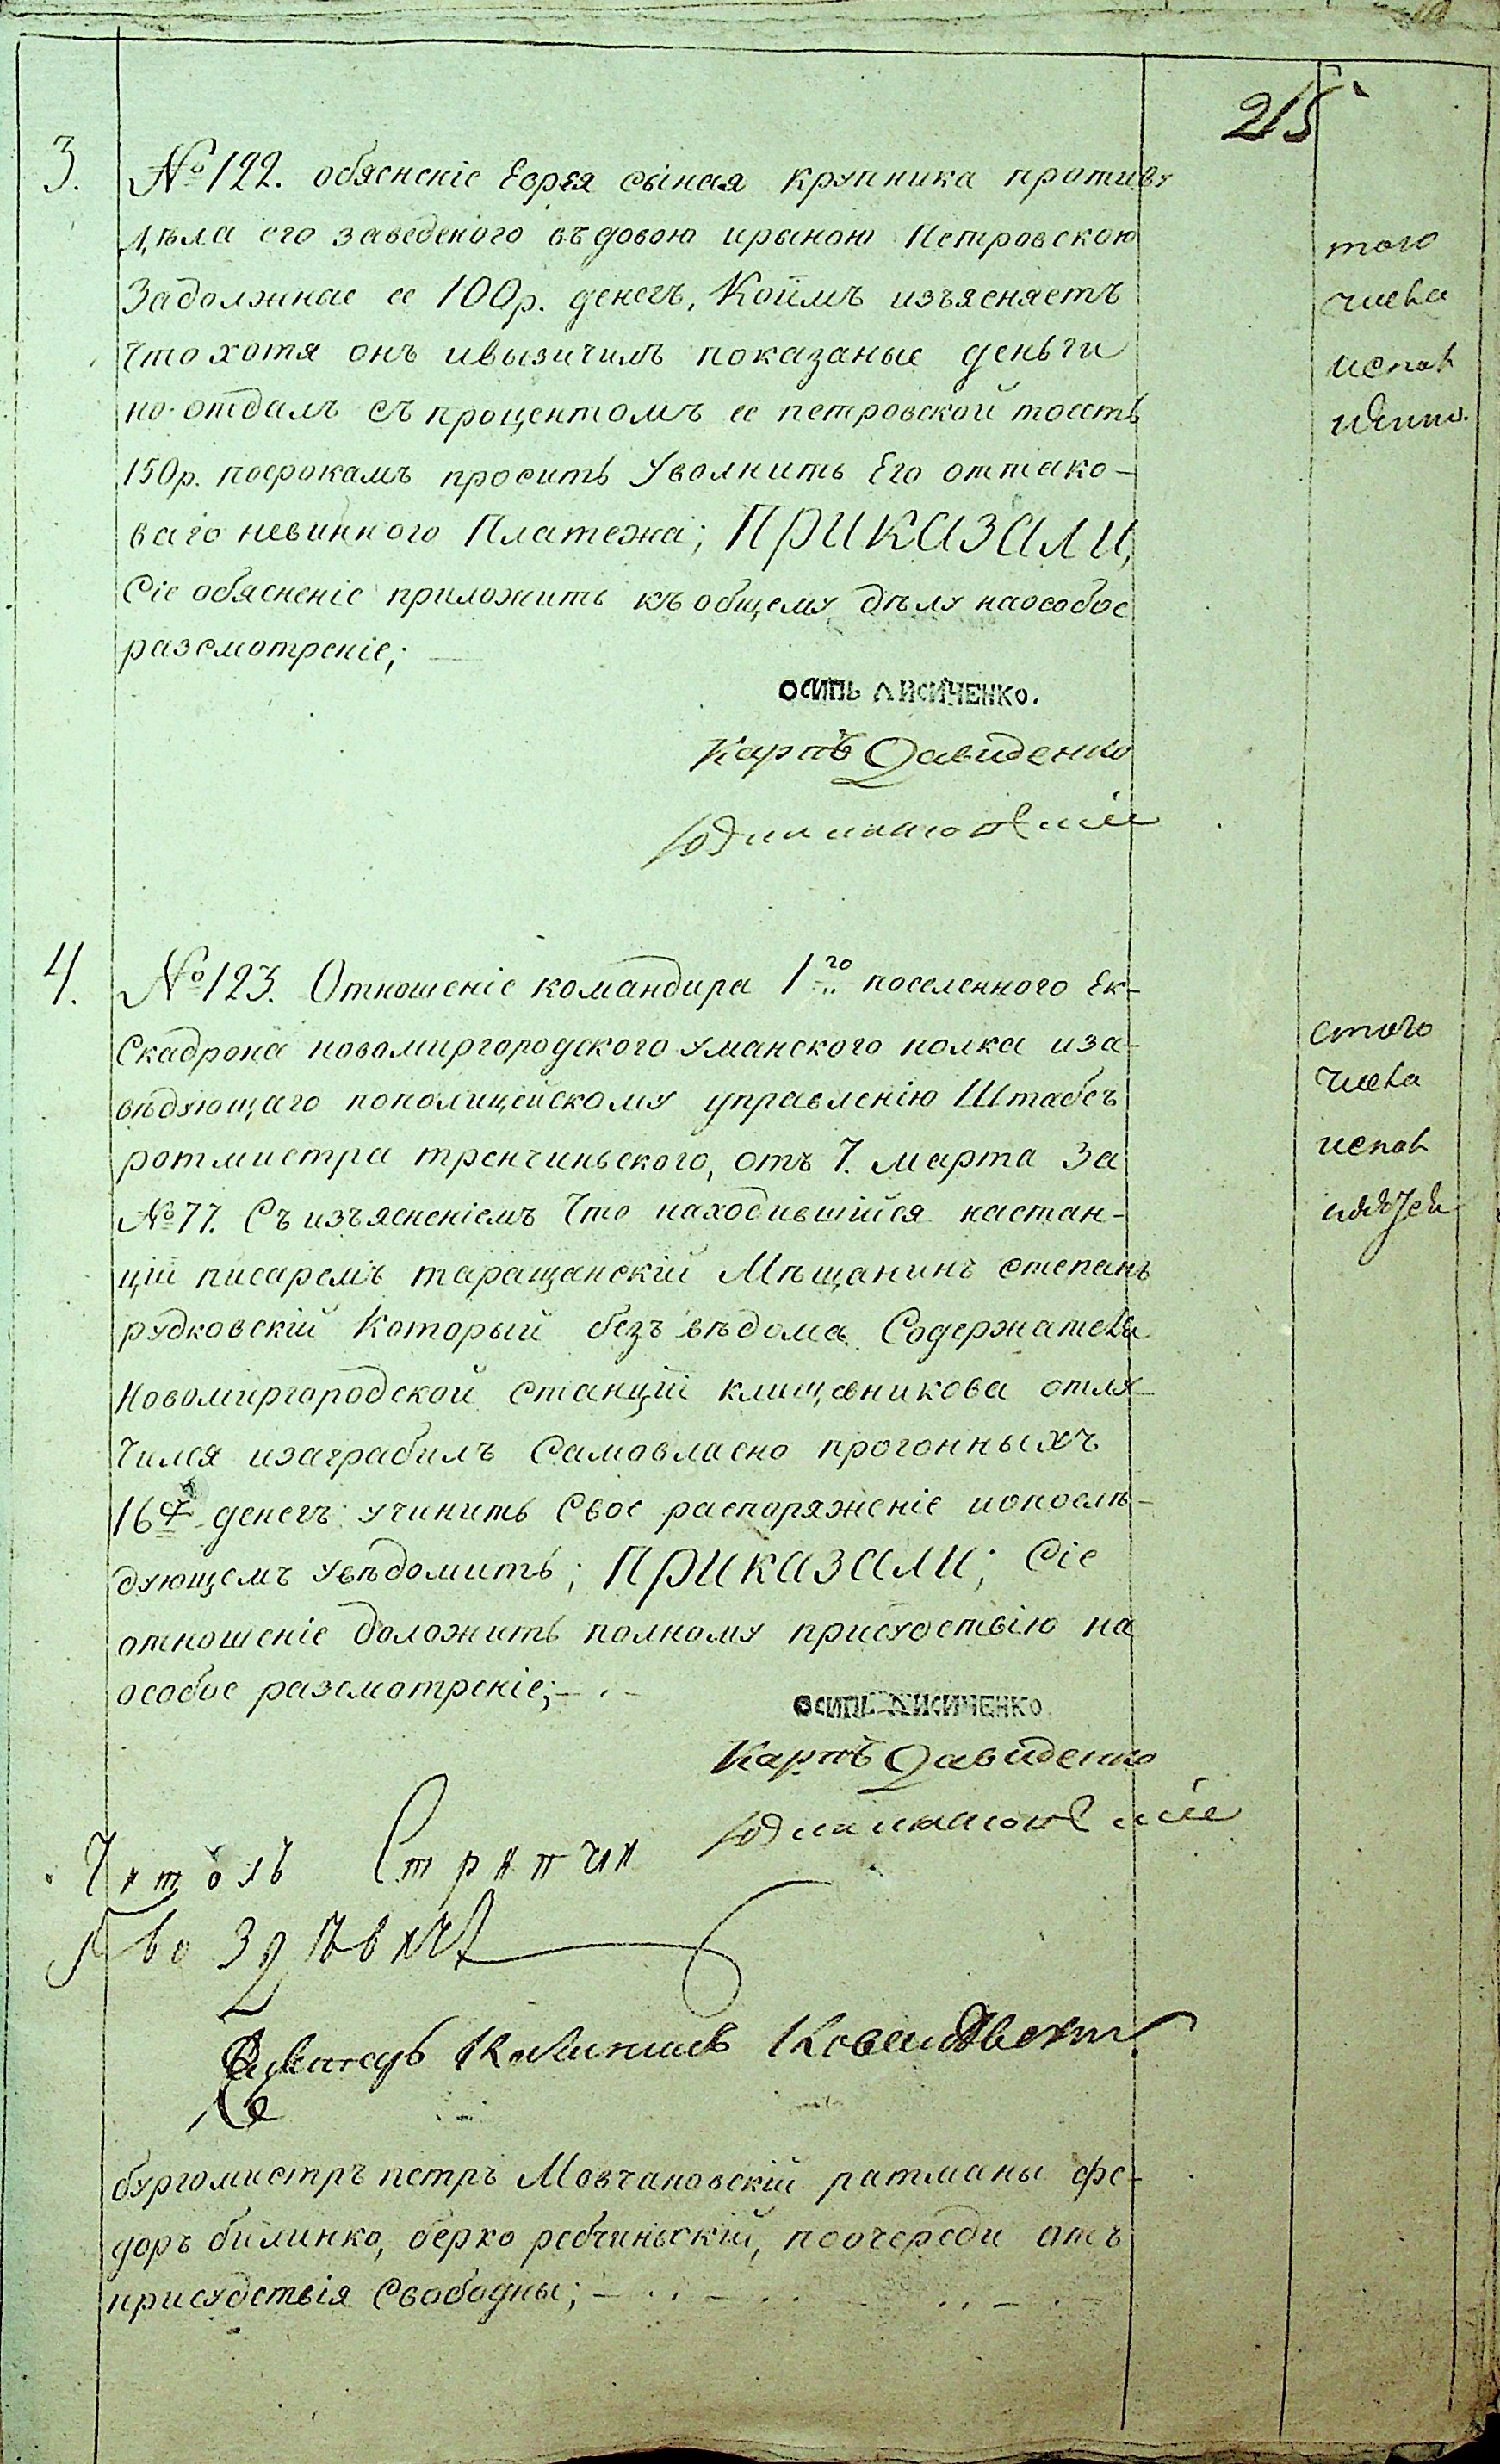 215
3. №122. обясненіе Еорея сыная крупника противу
дѣла его заведеного въдовою ирыною Петровскою
Задолжные ее 100р. денегъ, Коимъ изъясняетъ
что хотя онъ ивызичилъ показаные деньги
но отдалъ съ процентомъ ее петровской тоесть
150р. посрокамъ просить уволнить Его оттако-
ваго невинного Платежа; ПРИКАЗАЛИ,
Сіе обясненіе приложить къ общему дѣлу наособое
разсмотреніе;
того
числа
испол
ОСИПЬ ЛИСИЧЕНКО.
Карпъ Давиденко
4. №123. Отношеніе командира 1го поселенного Ек-
Скадрона новомиргородского уманского полка иза-
вѣдующаго пополицейскому управленію Штабсъ
ротмистра тренчиньского, отъ 7. марта За
№77. Съ изъясненіемъ Что находившійся настан-
ціи писаремъ таращанскій Мѣщанинъ степанъ
рудковскій Который безъ вѣдома Содержателя
Новомиргородской станціи клищевникова отлу-
чился изаграбилъ Самовласно прогонныхъ
денегъ учинить Свое распоряженіе ипослѣ-
дующемъ увѣдомить; ПРИКАЗАЛИ; Сіе
отношеніе доложить полному присудствію на
особое разсмотреніе;
стого
числа
испол
ОСИПЬ ЛИСИЧЕНКО
Карпъ Давиденко
Читалъ Стряпчи
бургомистръ петръ Мовчановскій ратманы фе-
доръ билинко, берко ребчиньскій, поочереди отъ
присудствія Свободны;